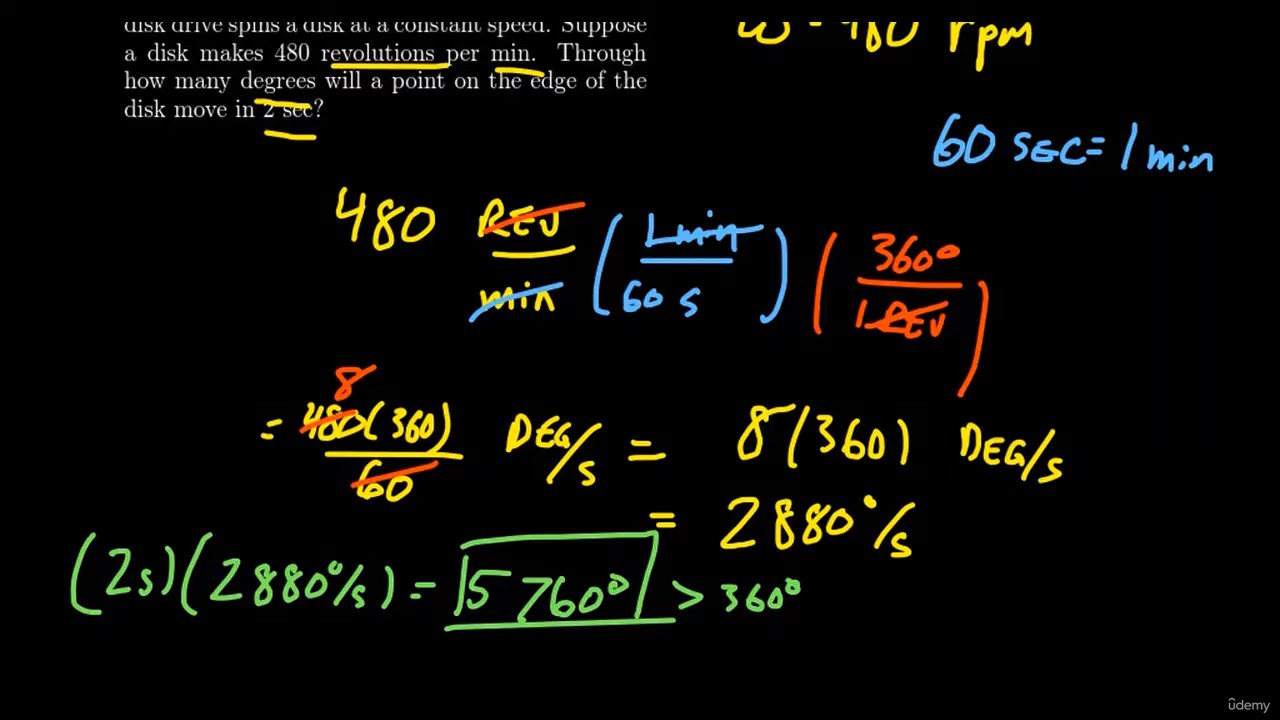 disk drive spins a disk at a constant speed. Suppose
a disk makes 480 revolutions per min. Through
how many degrees will a point on the edge of the
disk move in 2 sec?
ω = 480 rpm
60 SEC = 1 min
480 REV/min (1 min/60 s) (360°/1 REV)
8
= 480(360)/60 DEG/s = 8(360) DEG/s
= 2880°/s
(2s)(2880°/s) = 5760° > 360°
ûdemy